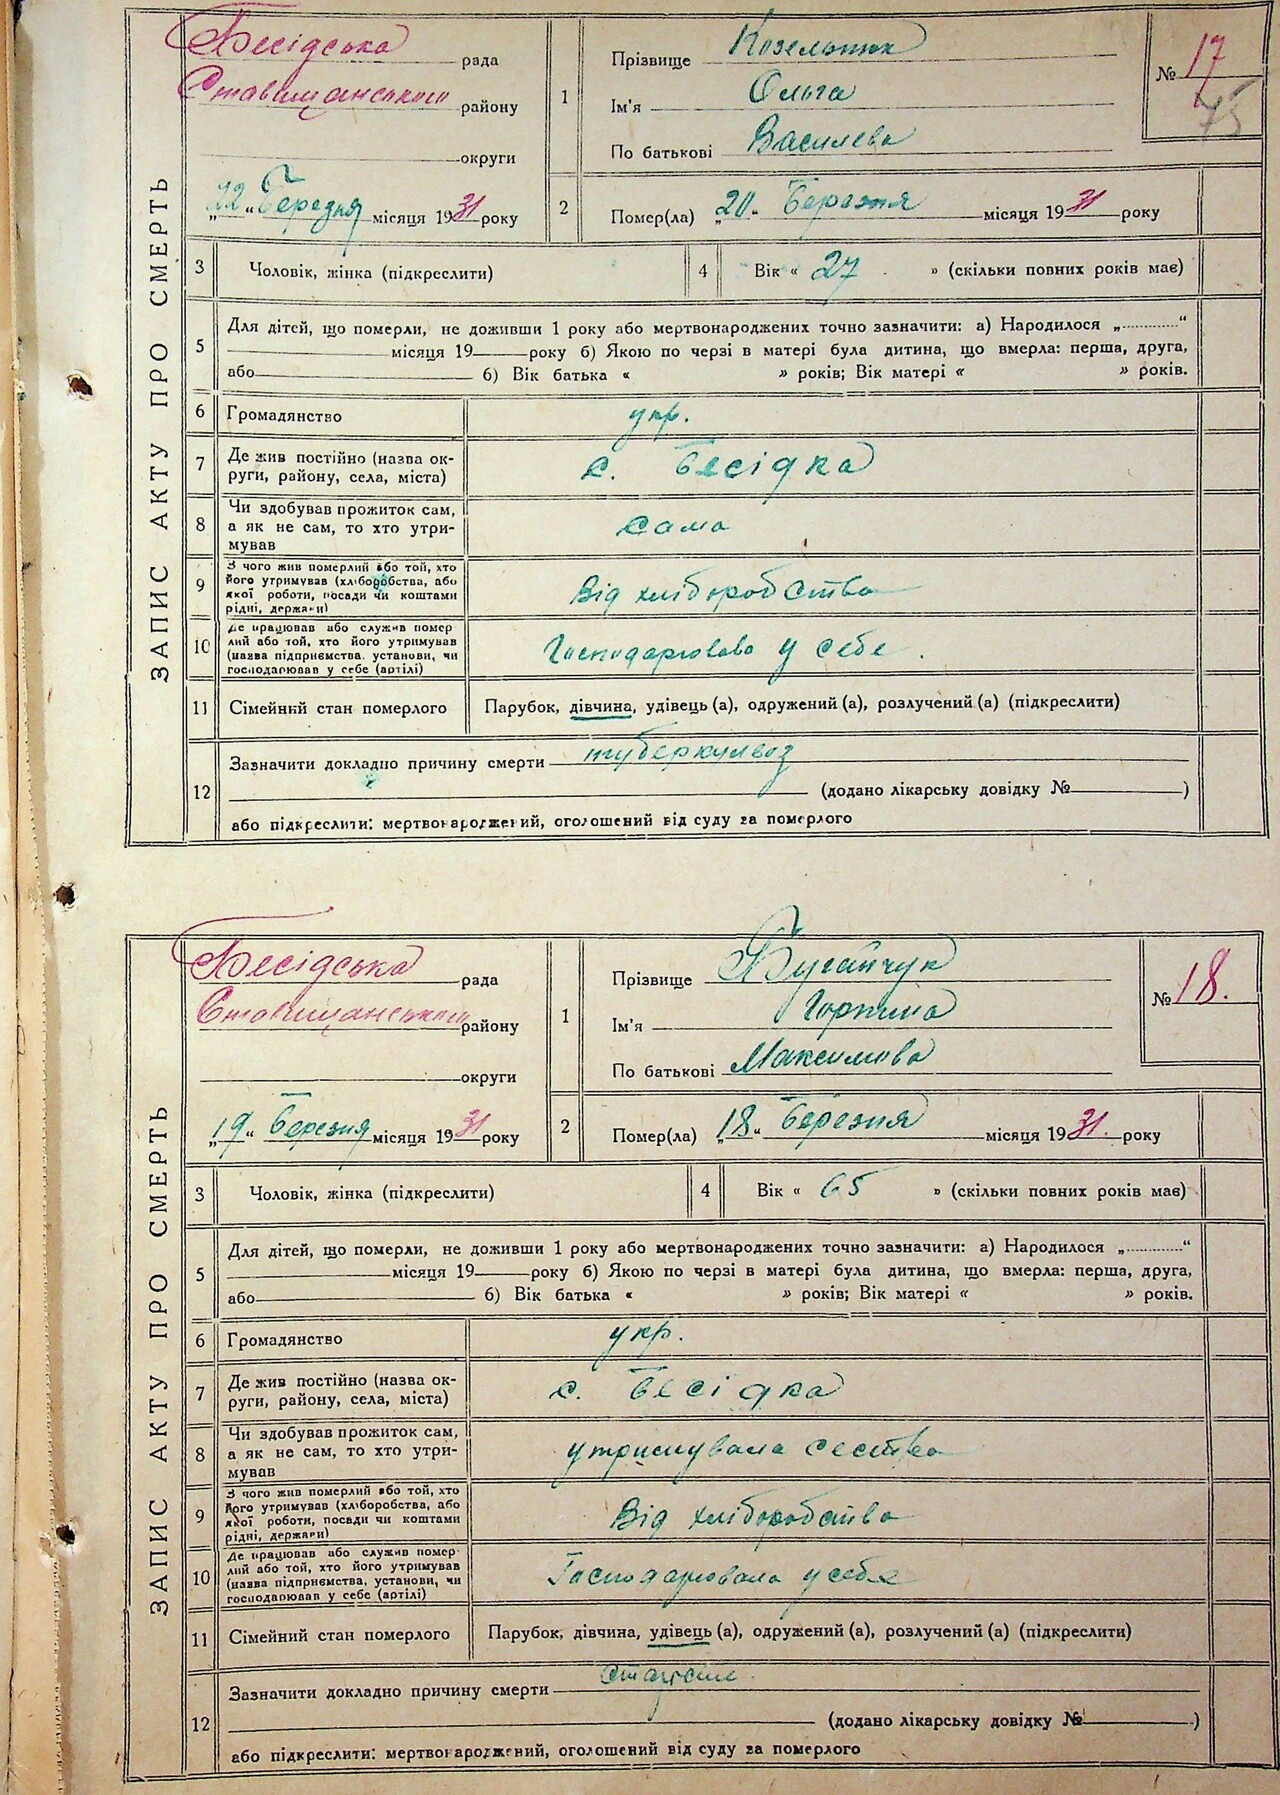 ЗАПИС АКТУ ПРО СМЕРТЬ
Бесідська рада
Ставищанського району
округи
„22“ Березня місяця 1931 року
1 Прізвище Козельтюк
Ім'я Ольга
По батькові Василева
№ 17
75
2 Помер(ла) „20“ Березня місяця 1931 року
3 Чоловік, жінка (підкреслити)
4 Вік « 27 » (скільки повних років має)
5 Для дітей, що померли, не доживши 1 року або мертвонароджених точно зазначити: а) Народилося „............“
місяця 19 року б) Якою по черзі в матері була дитина, що вмерла: перша, друга,
або 6) Вік батька « » років; Вік матері « » років.
6 Громадянство укр.
7 Де жив постійно (назва ок-
руги, району, села, міста) с. Бесідка
8 Чи здобував прожиток сам,
а як не сам, то хто утри-
мував сама
9 З чого жив померлий або той, хто
його утримував (хліборобства, або
якої роботи, посади чи коштами
рідні, держави) Від хліборобства
10 Де працював або служив помер
лий або той, хто його утримував
(назва підприємства, установи, чи
господарював у себе (артілі) Господарювала у себе.
11 Сімейний стан померлого Парубок, дівчина, удівець (а), одружений (а), розлучений (а) (підкреслити)
12 Зазначити докладно причину смерти туберкульоз
(додано лікарську довідку № )
або підкреслити: мертвонароджений, оголошений від суду за померлого
ЗАПИС АКТУ ПРО СМЕРТЬ
Бесідська рада
Ставищанського району
округи
„19“ Березня місяця 1931 року
1 Прізвище Бугайчук
Ім'я Горпина
По батькові Максимова
№ 18.
2 Помер(ла) „18“ Березня місяця 1931. року
3 Чоловік, жінка (підкреслити)
4 Вік « 65 » (скільки повних років має)
5 Для дітей, що померли, не доживши 1 року або мертвонароджених точно зазначити: а) Народилося „............“
місяця 19 року б) Якою по черзі в матері була дитина, що вмерла: перша, друга,
або 6) Вік батька « » років; Вік матері « » років.
6 Громадянство укр.
7 Де жив постійно (назва ок-
руги, району, села, міста) с. Бесідка
8 Чи здобував прожиток сам,
а як не сам, то хто утри-
мував утримувала
9 З чого жив померлий або той, хто
його утримував (хліборобства, або
якої роботи, посади чи коштами
рідні, держави) Від хліборобства
10 Де працював або служив помер-
лий або той, хто його утримував
(назва підприємства, установи, чи
господарював у себе (артілі) Господарювала у себе
11 Сімейний стан померлого Парубок, дівчина, удівець (а), одружений (а), розлучений (а) (підкреслити)
12 Зазначити докладно причину смерти
(додано лікарську довідку № )
або підкреслити: мертвонароджений, оголошений від суду за померлого